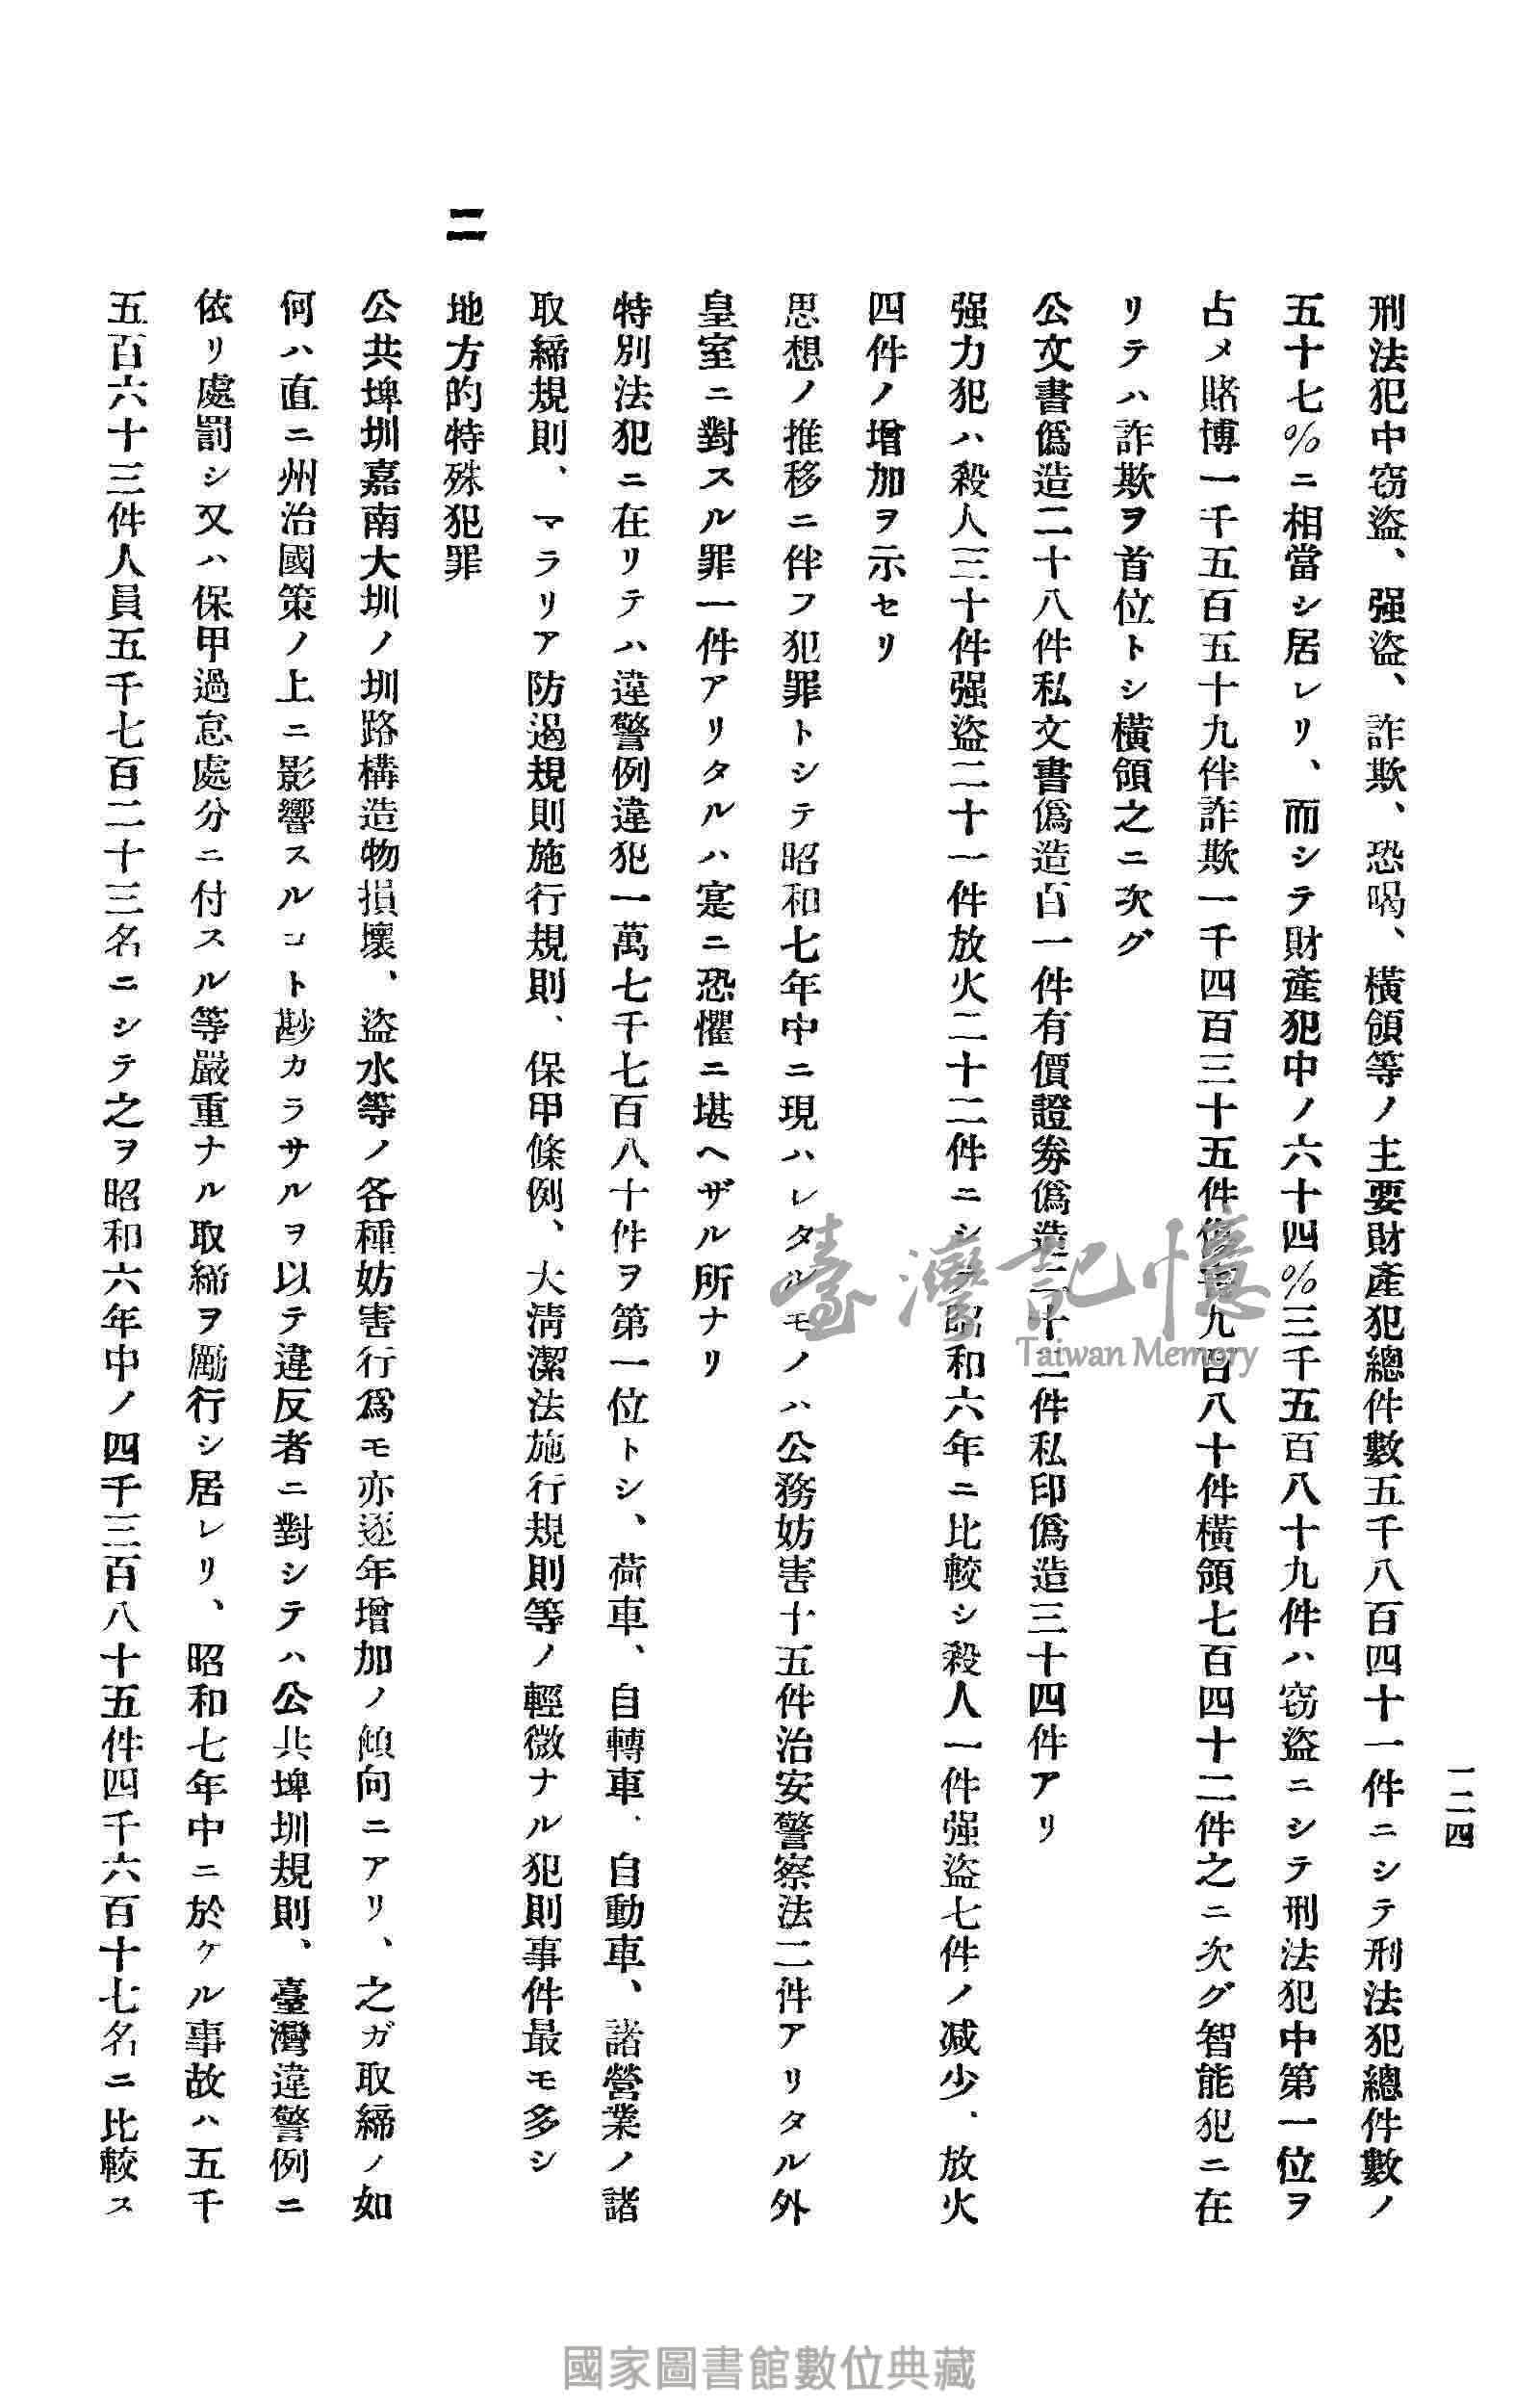 一二四
刑法犯中窃盜、强盜、詐欺、恐喝、橫領等ノ主要財產犯總件數五千八百四十一件ニシテ刑法犯總件數ノ
五十七%ニ相當シ居レリ、而シテ財產犯中ノ六十四%三千五百八十九件ハ窃盜ニシテ刑法犯中第一位ヲ
占メ賭博一千五百五十九件詐欺一千四百三十五件傷害九百八十件橫領七百四十二件之ニ次グ智能犯ニ在
リテハ詐欺ヲ首位トシ橫領之ニ次グ
公文書僞造二十八件私文書僞造百一件有價證劵僞造二十二件私印僞造三十四件アリ
强力犯ハ殺人三十件强盜二十一件放火二十二件ニシテ昭和六年ニ比較シ殺人一件强盜七件ノ減少、放火
四件ノ增加ヲ示セリ
思想ノ推移ニ伴フ犯罪トシテ昭和七年中ニ現ハレタルモノハ公務妨害十五件治安警察法二件アリタル外
皇室ニ對スル罪一件アリタルハ寔ニ恐懼ニ堪ヘザル所ナリ
特別法犯ニ在リテハ違警例違犯一萬七千七百八十件ヲ第一位トシ、荷車、自轉車、自動車、諸營業ノ諸
取締規則、マラリア防遏規則施行規則、保甲條例、大淸潔法施行規則等ノ輕微ナル犯則事件最モ多シ
二 地方的特殊犯罪
公共埤圳嘉南大圳ノ圳路構造物損壞、盜水等ノ各種妨害行爲モ亦逐年增加ノ傾向ニアリ、之ガ取締ノ如
何ハ直ニ州治國策ノ上ニ影響スルコト尠カラサルヲ以テ違反者ニ對シテハ公共埤圳規則、臺灣違警例ニ
依リ處罰シ又ハ保甲過怠處分ニ付スル等嚴重ナル取締ヲ勵行シ居レリ、昭和七年中ニ於ケル事故ハ五千
五百六十三件人員五千七百二十三名ニシテ之ヲ昭和六年中ノ四千三百八十五件四千六百十七名ニ比較ス
臺灣記憶
Taiwan Memory
國家圖書館數位典藏